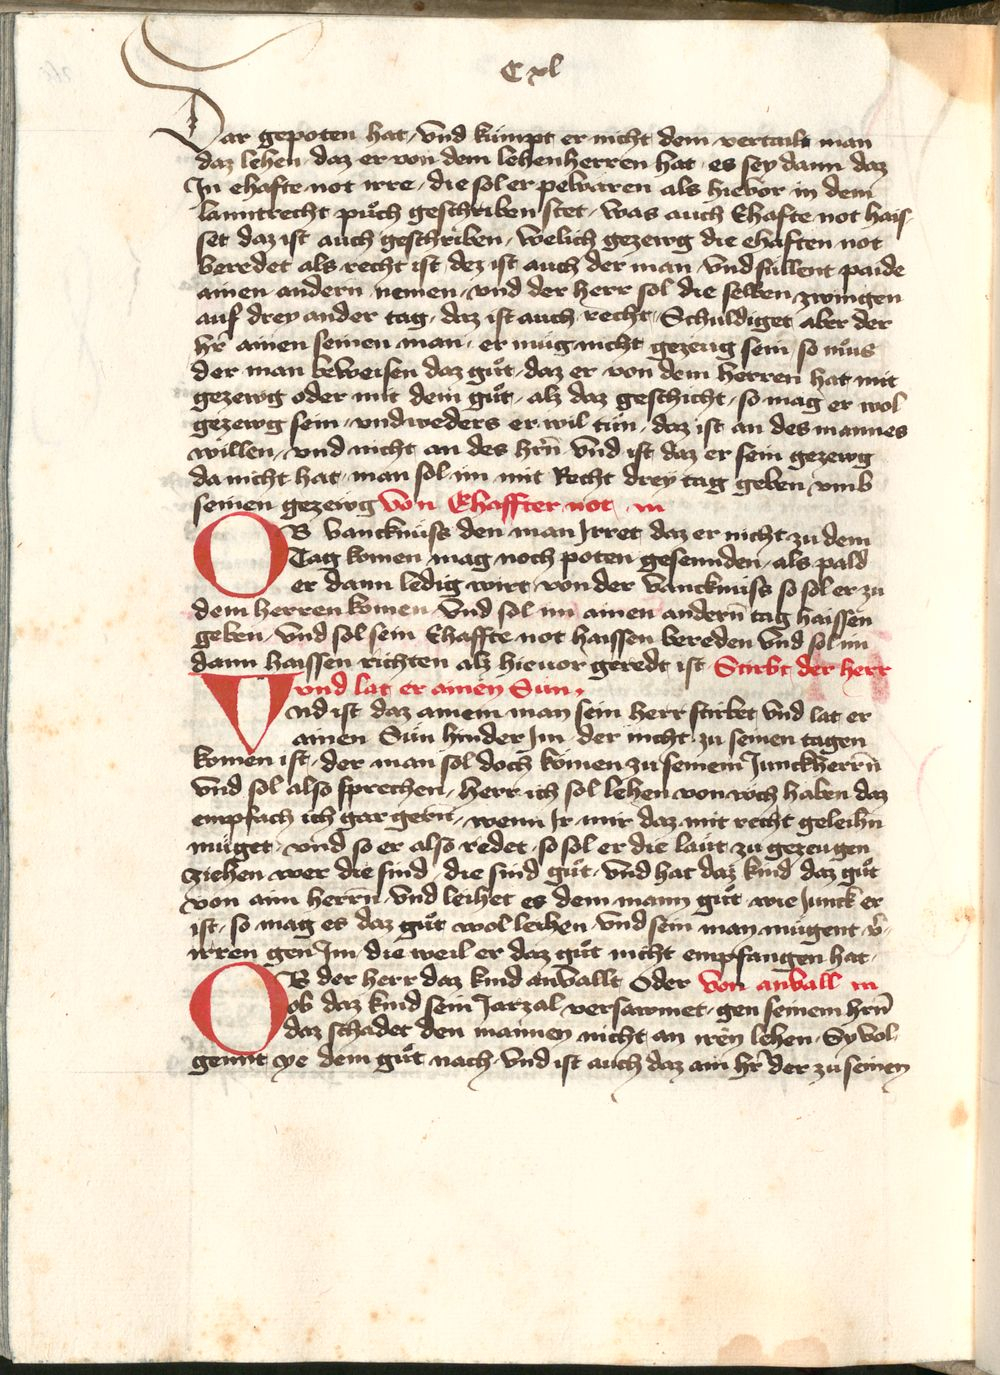 Cxl
Dar gepoten hat / vnd kümpt er nicht dem vertailt man
daz lehen / daz er von dem lehenherren hat / es sey dann daz
In ehafte not irre / die sol er pewaren als hieuor in dem
lanntrecht püch geschriben stet / was auch Ehafte not hais-
set daz ist auch geschriben / welich gezewg die ehaften not
beredet als recht ist / dez ist auch der man / vnd süllent paide
ainen andern nemen / vnd der herr sol die selben zwingen
auf drey ander tag / daz ist auch recht / Schuldiget aber der
hr̄ ainen seinen man / er müg nicht gezeug sein / so můs
der man beweisen daz gůt / daz er von dem herren hat mit
gezewg oder mit dem gůt / alz daz geschicht / so mag er wol
gezewg sein / vnd weders er wil tün / daz ist an des mannes
willen / vnd nicht an des hrn̄ vnd ist daz er sein gezewg
da nicht hat / man sol im mit Recht drey tag geben vmb
seinen gezewg Von Ehaffter not m
OB vancknüss den man Irret daz er nicht zu dem
Tag komen mag noch poten gesennden / als pald
er dann ledig wirt von der vancknüss so sol er zu
dem herren komen / vnd sol im ainen andern̄ tag haissen
geben / vnd sol sein Ehaffte not haissen bereden vnd sol im
dann haissen richten alz hieuor geredt ist Stirbt der herr
vnd lat er ainen Sun /
Vnd ist daz ainem man sein herr stirbet vnd lat er
ainen Sün hinder Im / der nicht zu seinen tagen
komen ist / der man sol doch komen zu seinem Junckherrn̄
vnd sol also sprechen / herr ich sol lehen von wch haben daz
empfach ich gar gern̄ / wenn Ir mir daz mit recht geleihn
müget / vnd so er also redet / so sol er die laüt zu gezeugen
ziehen wer die sind / die sind gůt / vnd hat daz kind daz gůt
von aim herrn̄ / vnd leihet es dem mann gůt wie Junck er
ist / so mag es daz gůt wol leihen / vnd sein man mügent v̄-
irren gen Im / die weil er daz gůt nicht empfangen hat /
OB der herr daz kind anvallt Oder Von anvall m
ob daz kind sein Jarzal versawmet / gen seinem hrn̄
daz schadet den mannen nicht an iren lehen / Sy vol-
gennt ye dem gůt nach / vnd ist auch daz ain hr̄ der zu seinen